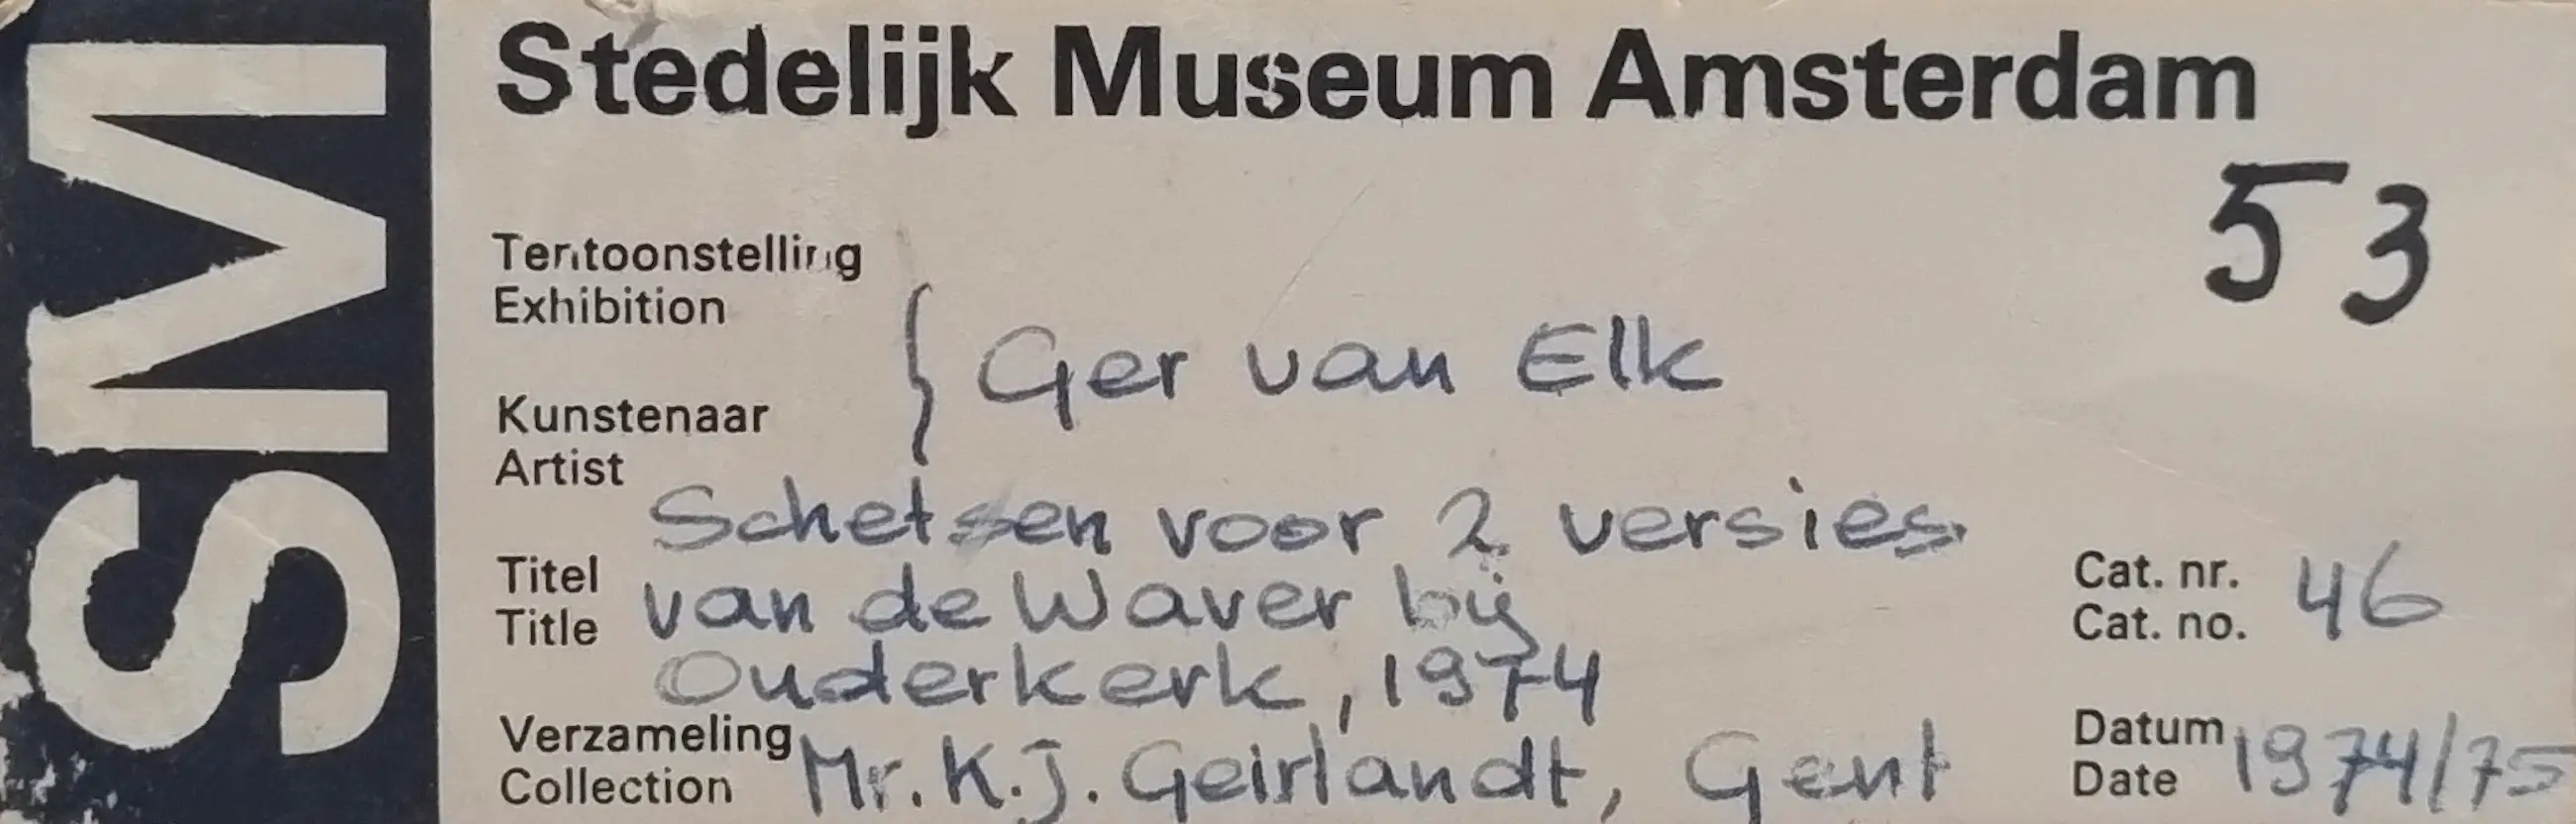 SM
Stedelijk Museum Amsterdam
53
Tentoonstelling
Exhibition
{ Ger van Elk
Kunstenaar
Artist
Schetsen voor 2 versies
Titel van de Waver bij
Title
Ouderkerk, 1974
Cat. nr. 46
Cat. no.
Verzameling Mr. K.J. Geirlandt, Gent
Collection
Datum 1974/75
Date